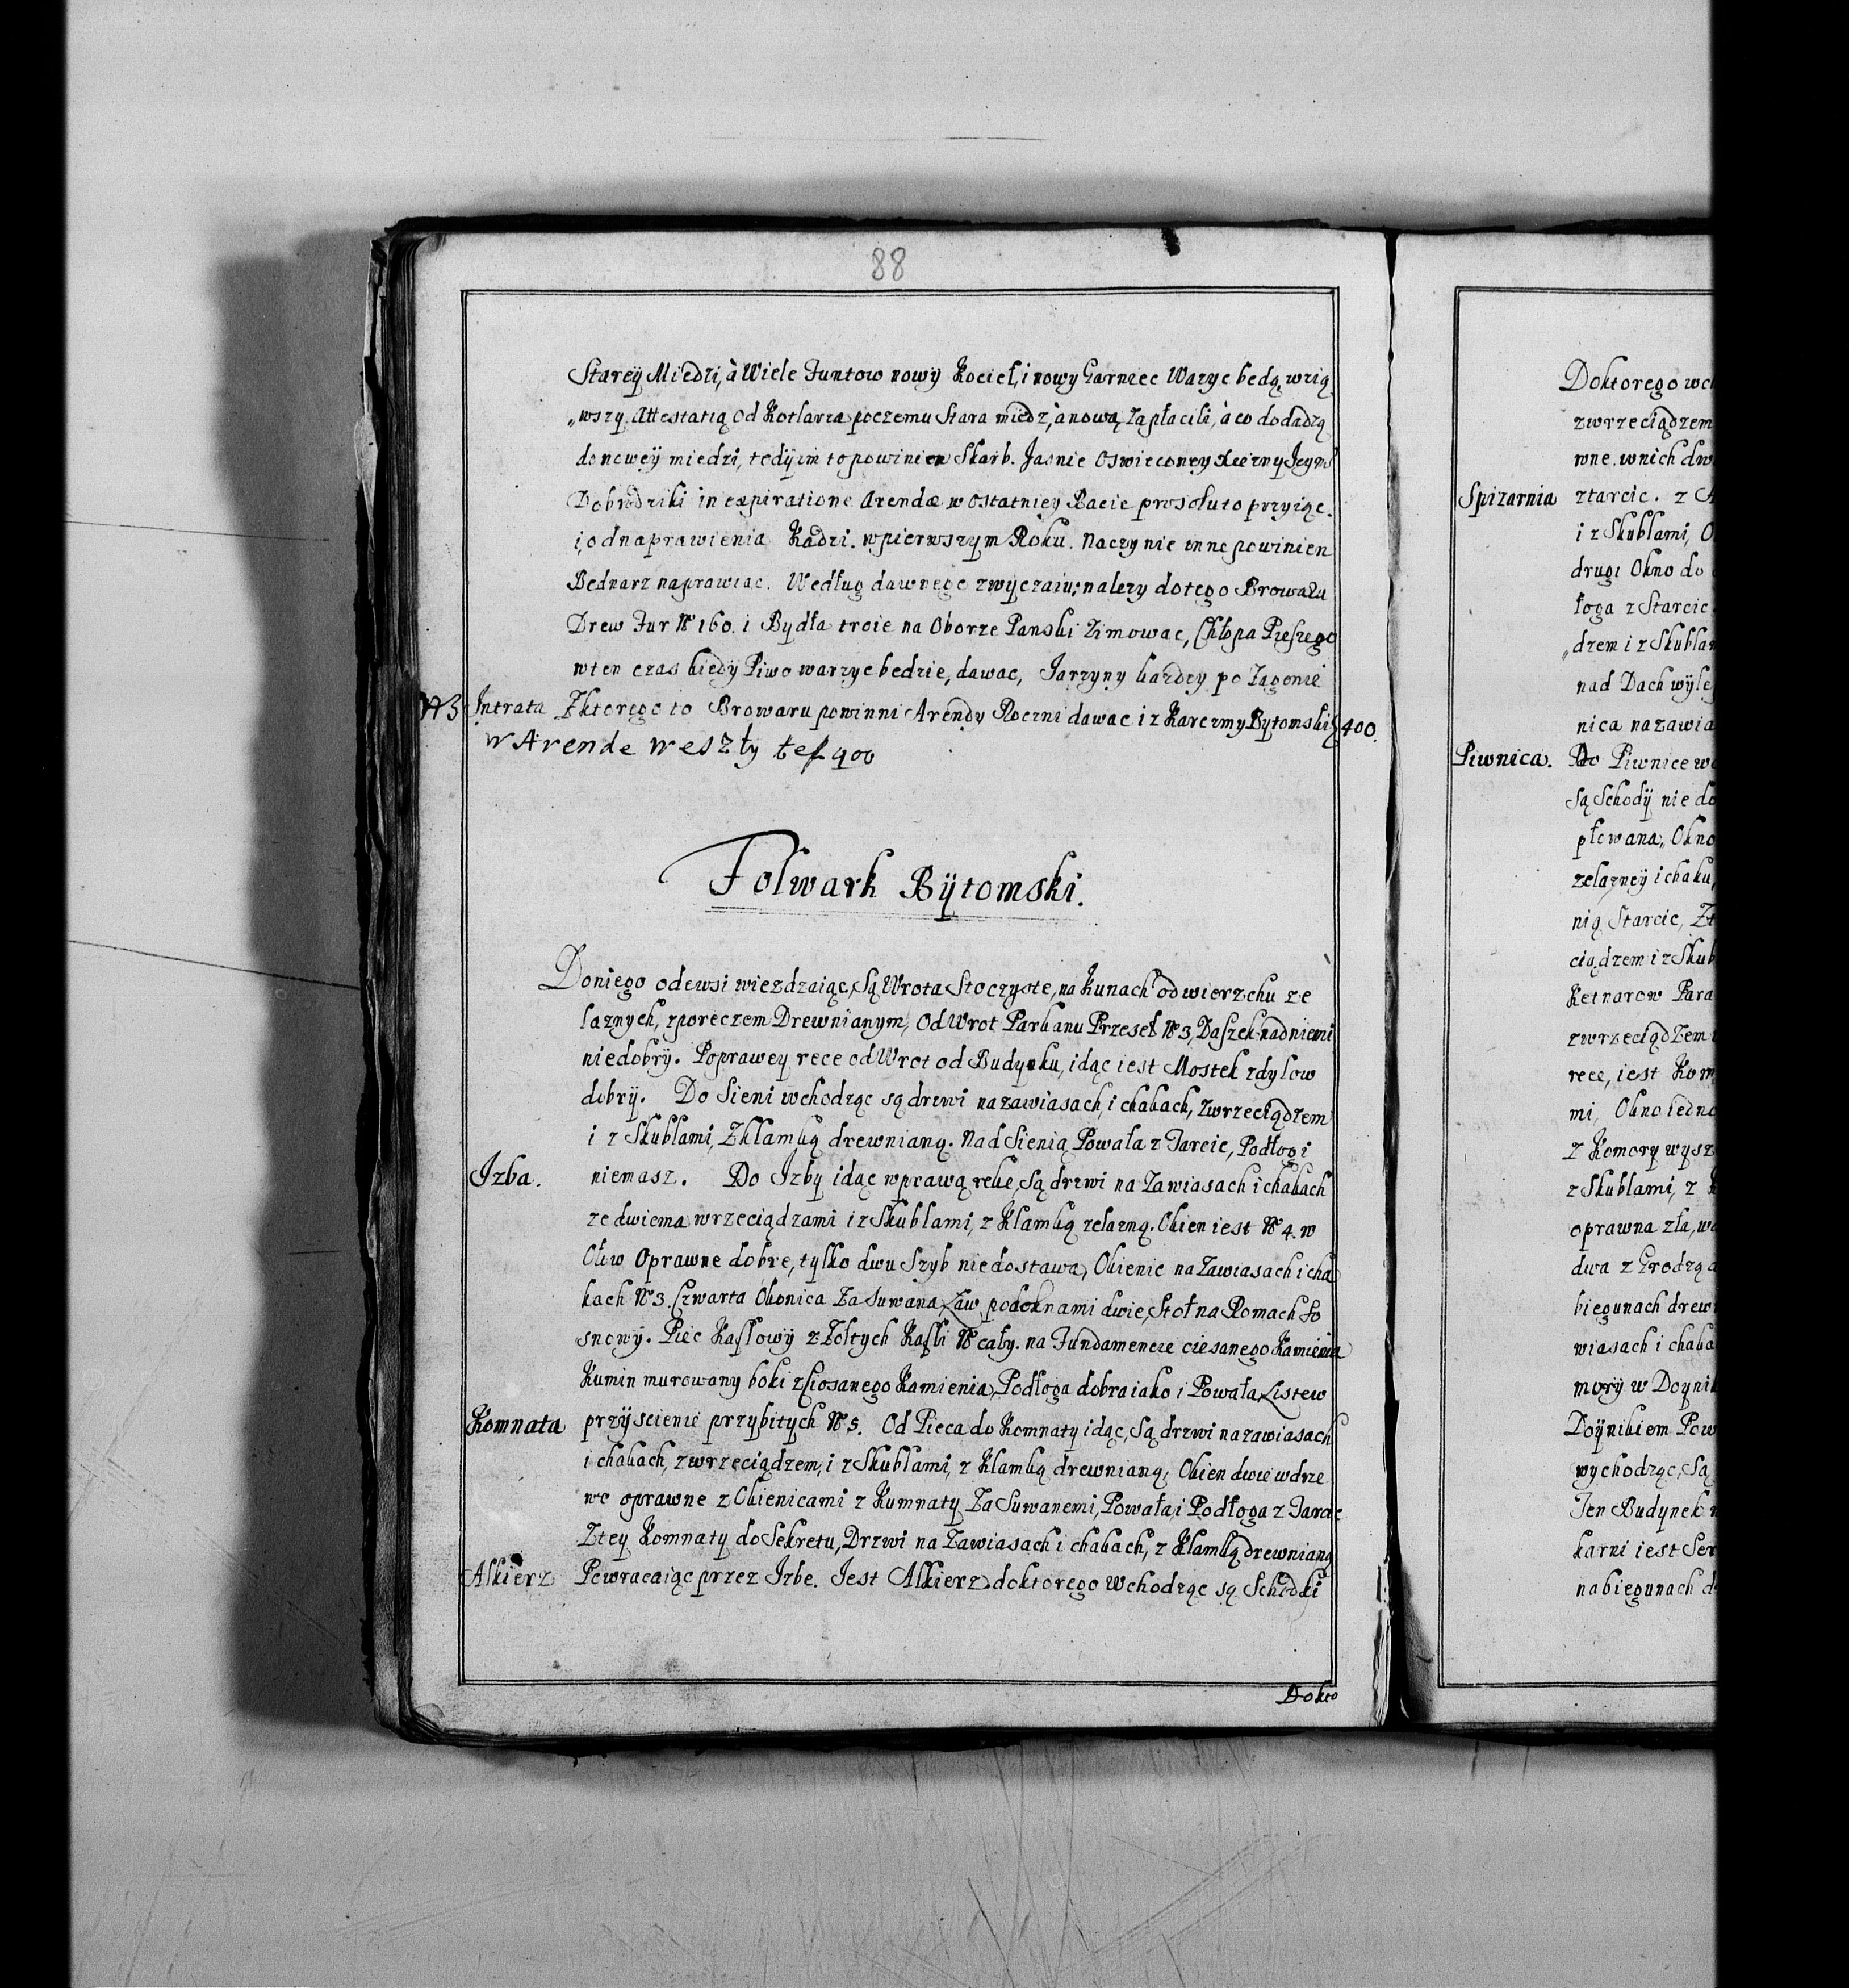 88
Starey Miedzi, à Wiele Funtow nowy Kocieł, i nowy Garniec Wazyc będą, wzią
„wszy Attestatią od Kotlarza poczemu Stara miedz, à nową zapłacili, à co dodadzą
do nowey miedzi, tedy im to powinien Skarb. Jasnie Oswieconey Xiezny Jeyms
Dobrodziki in expiratione Arendæ w ostatniey Racie pro soluto przyiąc.
i, od naprawienia Kadzi. w pierwszym Roku. Naczynie inne powinien
Bednarz naprawiac. Według dawnego zwyczaiu; nalezy do tego Browaru
Drew Fur No 160. i Bydła troie na Oborze Panski Zimowac, Chłopa Pieszego
w ten czas kiedy Piwo warzyc bedzie, dawac, Jarzyny kazdzy po Zagonie
Intrata Zktorego to Browaru powinni Arendy Roczni dawac i z Karczmy Bytomski 400.
w Arende weszły te f 400
Folwark Bytomski.
Do niego ode wsi wiezdzaiąc, Są Wrota Stoczyste, na Kunach od wierzchu ze
laznych, z poreczem Drewnianym, Od Wrot Parkanu Przeseł No 3, Daszek nad niemi
niedobry. Po prawey rece od Wrot od Budynku, idąc iest Mostek z dylow
dobry. Do Sieni wchodząc są drzwi na zawiasach, i chakach, z wrzeciądzem
i z Skublami, Z klamką drewnianą. Nad Sienią Powała z Tarcic, Podłogi
Izba. niemasz. Do Izby idąc w prawą reke, Są drzwi na Zawiasach i chakach
ze dwiema wrzeciądzami i z Skublami, z Klamką zelazną. Okien iest No 4. w
Ołow Oprawne dobre, tylko dwu Szyb niedostawa, Okienic na Zawiasach i cha
kach No 3. Czwarta Okonica Zasuwana, Ław pod oknami dwie, Stoł na Romach So
snowy. Piec Kaflowy z Zołtych Kafli No cały. na Fundamencie ciesanego Kamienia
Kumin murowany boki z ciosanego Kamienia, Podłoga dobra iako i Powała Listew
Komnata przy scienie przybitych No 5. Od Pieca do Komnaty idąc, Są drzwi na zawiasach
i chakach, z wrzeciądzem, i z Skublami, z Klamką drewnianą, Okien dwie w drze
wo oprawne z Okienicami z Kumnaty Zasuwanemi, Powała, i Podłoga z Tarcic
Z tey Komnaty do Sekretu, Drzwi na Zawiasach i chakach, z Klamką drewnianą
Alkierz Powracaiąc przez Izbe. Jest Alkierz do ktorego Wchodząc są Schodki
Dokto
Doktorego wc
z wrzeciądzem
wne. w nich dw
Spizarnia z tarcic. z
i z Skublami, O
drugi Okno do
łoga z Starcic
„dzem i z Skubla
nad Dach wyle
nica na zawia
Piwnica. Do Piwnice w
Są Schody nie do
płowana, Okno
zelazney i chaku,
nią Starcic, Zt
ciądzem i z Skub
Ketnarow Para
z wrzeciądzem
rece, iest Kom
mi, Okno iedno
z Komory wysz
z Skublami, z
oprawna zła, w
dwa z Grodzą
biegunach drew
wiasach i chaka
mory w Doyni
Doynikiem Pow
wychodząc, Są
Ten Budynek
karni iest Ser
na biegunach d